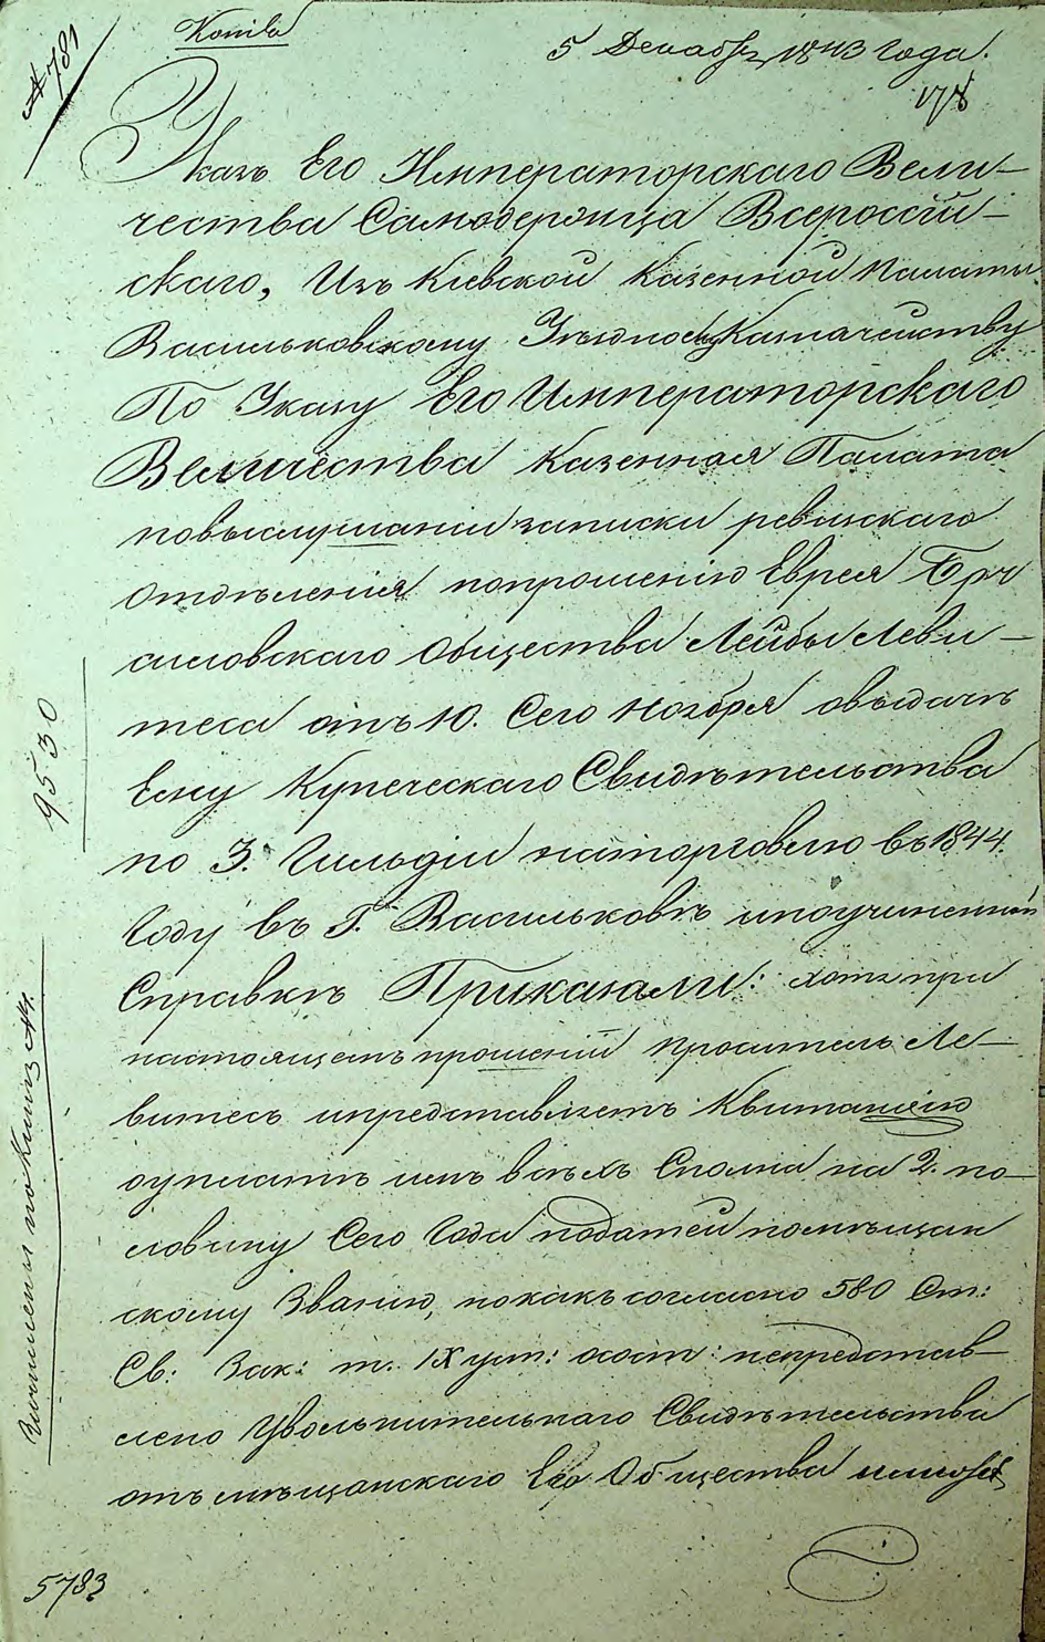 № 781
Копiя
5 Декабря 1843 года.
178
Указъ Его Императорскаго Вели-
чества Самодержца Всероссiй-
скаго, Изъ Кiевской Казенной Палаты
Васильковскому Уѣздному Казначейству
По Указу Его Императорскаго
Величества Казенная Палата
повыслушанiи записки ревизскаго
отдѣленiя попрошенiю Еврея
силовскаго Общества Лейбы Леви-
теса отъ 10. Сего Ноября овыдачѣ
Ему Купеческаго Свидѣтельства
по 3. Гильдiи наторговлю въ 1844.
Году въ Г. Васильковѣ ипоучиненной
Справкѣ Приказали: хотя при
настоящемъ прошенiи проситель Ле-
витесъ ипредставляетъ Квитанцiю
оуплатѣ имъ всѣхъ Сполна на 2. по-
ловину Сего Года податей помѣщан
скому Званiю, нокакъ согласно 580 Ст:
Св: Зак: т. IX уст: осост: непредстав-
лено Увольнительнаго Свидѣтельства
отъ мѣщанскаго Его Общества
9530
по Книгѣ №
5783